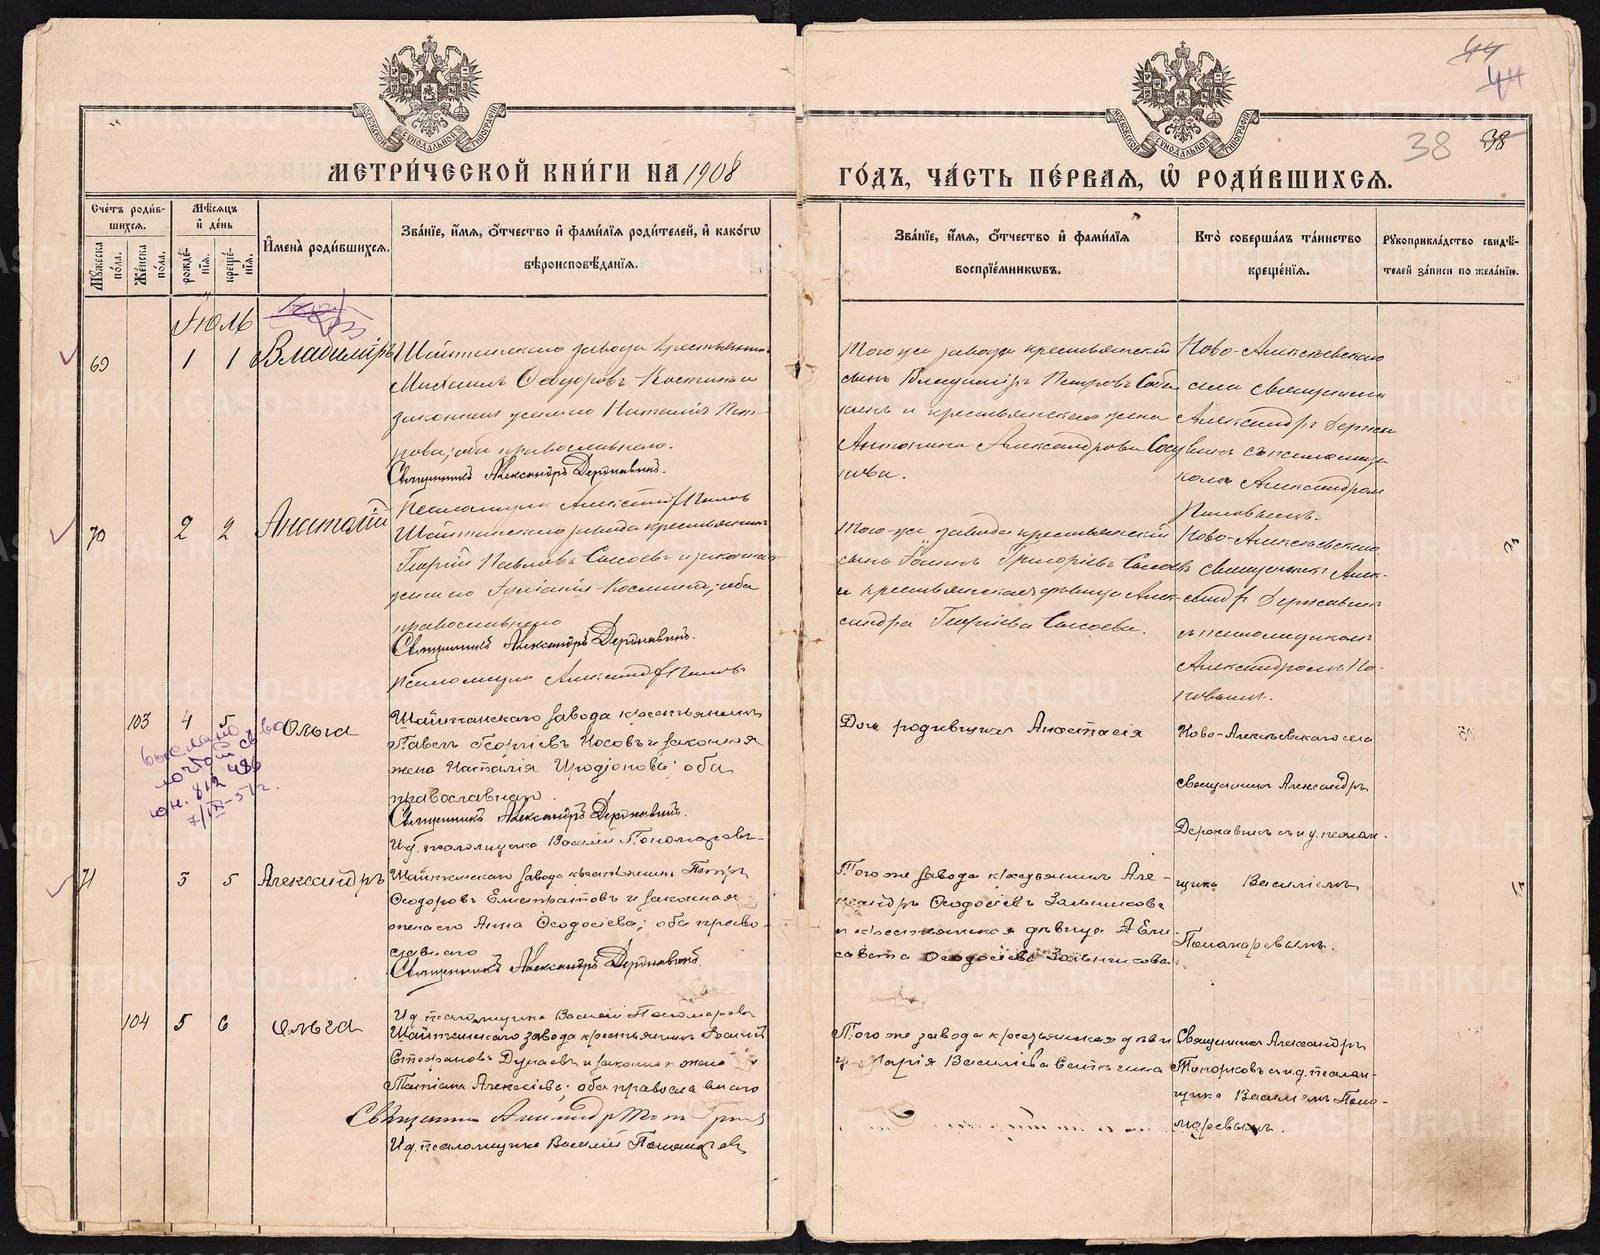 44
44
38 38
МОСКОВСКОЙ СѴНОДАЛЬНОЙ ТИПОГРАФІИ
МОСКОВСКОЙ СѴНОДАЛЬНОЙ ТИПОГРАФІИ
МЕТРИ́ЧЕСКОЙ КНИ́ГИ НА 1908 ГО́ДЪ, ЧА́СТЬ ПЕ́РВАЯ, Ѡ҆ РОДИ́ВШИХСЯ.
Сче́тъ роди́вшихся.
Мѹ́жеска по́ла.
Же́нска по́ла.
Мѣ́сяцъ и҆ де́нь
рожде́нїя.
креще́нїя.
И҆мена̀ роди́вшихся.
Зва́нїе, и҆́мя, ѻ҆́тчество и҆ фами́лїя роди́телей, и҆ како́гѡ
вѣроисповѣ́данїя.
Зва́нїе, и҆́мя, ѻ҆́тчество и҆ фами́лїя
воспрїе́мникѡвъ.
Кто̀ соверша́лъ та́инство
креще́нїя.
Рꙋкоприкла́дство свидѣ́-
телей за́писи по жела́нїю.
Іюль
69 1 1 Владиміръ
Шайтанскаго завода крестьянинъ
Михаилъ Ѳеодоровъ Костинъ и
законная жена его Наталія Пет-
рова; оба православнаго.
Священникъ Александръ Державинъ.
Псаломщикъ Александръ Поповъ
Того-же завода крестьянскій
сынъ Владиміръ Петровъ
и крестьянская жена
Антонина Александрова
Ново-Алексѣевскаго
села священникъ
Александръ Держа-
винъ съ псаломщи-
комъ Александромъ
Поповымъ.
70 2 2 Анатолій
Шайтанскаго завода крестьянинъ
Георгій Павловъ Сысоевъ и законная
жена его Космина; оба
православнаго
Священникъ Александръ Державинъ.
Псаломщикъ Александръ Поповъ
Того-же завода крестьянскій
сынъ Григорьевъ Сысоевъ
и крестьянская дѣвица Алек-
сандра Георгіева Сысоева.
Ново-Алексѣевскаго
священникъ Алек-
сандръ Державинъ
съ псаломщикомъ
Александромъ По-
повымъ.
103 4 5 Ольга
выслано
почтой св-во
юн. 812486
7/IX-57г.
Шайтанскаго завода крестьянинъ
Павелъ Георгіевъ Носовъ и законная
жена Наталія Иродіонова; оба
православнаго.
Священникъ Александръ Державинъ.
И.д. псаломщика Василій Пономаревъ
Дочь родившихъ Анастасія
Ново-Алексѣевскаго села
священникъ Александръ
Державинъ съ и.д. псалом-
щика Василіемъ
Пономаревымъ.
71 5 5 Александръ
Шайтанскаго завода крестьянинъ Петръ
Ѳеодоровъ Елистратовъ и законная
жена его Анна Ѳеодосіева; оба право-
славнаго
Священникъ Александръ Державинъ.
И.д. псаломщика Василій Пономаревъ
Того же завода крестьянинъ Але-
ксандръ Ѳеодосіевъ Зальниковъ
и крестьянская дѣвица Ели-
савета Ѳеодосіева Зальникова.
104 5 6 Ольга
Шайтанскаго завода крестьянинъ
Стефановъ Дунаевъ и законная жена
Татіана Алексіева; оба православнаго
Священникъ Александръ Топорковъ
И.д. псаломщика Василій Пономаревъ
Того же завода крестьянская дѣви-
ца Марія Василіева
Священникъ Александръ
Топорковъ съ и.д. псалом-
щика Василіемъ Поно-
маревымъ.
METRIKI.GASO-URAL.RU